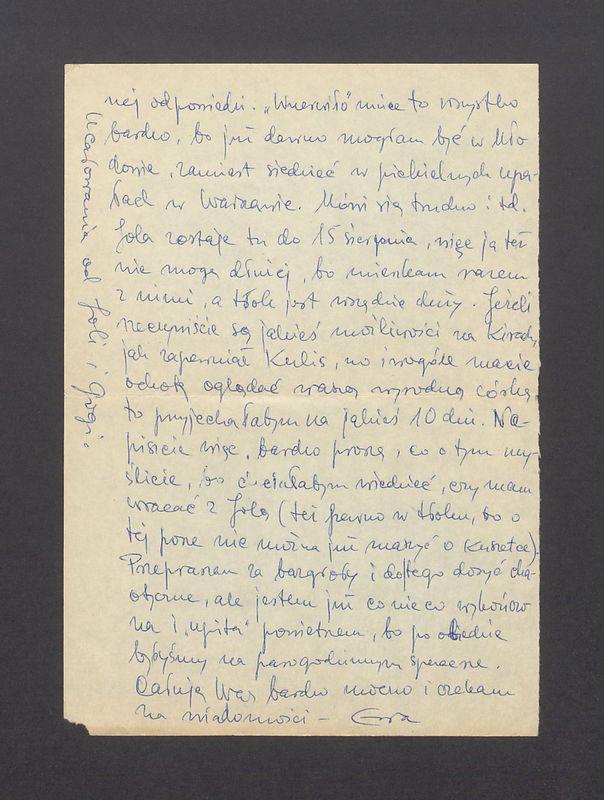 nej odpowiedzi. „Wnerwiło" mnie to wszystko
bardzo, bo już dawno mogłam być w Mło
dowie, zamiast siedzieć w piekielnych upa-
łach w Warszawie. Mówi się trudno i td.
Jola zostaje tu do 15 sierpnia, więc ja też
nie mogę dłużej, bo mieszkam razem
z nimi, a tłok jest wszędzie duży. Jeżeli
rzeczywiście są jakieś możliwości na
jak zapewniał Kulis, no i wogóle macie
ochotę oglądać waszą wyrodną córkę,
to przyjechałabym na jakieś 10 dni. Na-
piszcie więc, bardzo proszę, co o tym my-
ślicie, bo chciałabym wiedzieć, czy mam
wracać z Jolą (też pewno w tłoku, bo o
tej porze nie można już marzyć o kuszetce).
Przepraszam za bazgroły i do tego dosyć cha-
otyczne, ale jestem już co nieco wykończo-
na i „upita" powietrzem, bo po obiedzie
byłyśmy na parogodzinnym spacerze.
Całuję Was bardzo mocno i czekam
na wiadomości – Ewa
Ucałowania od Joli i